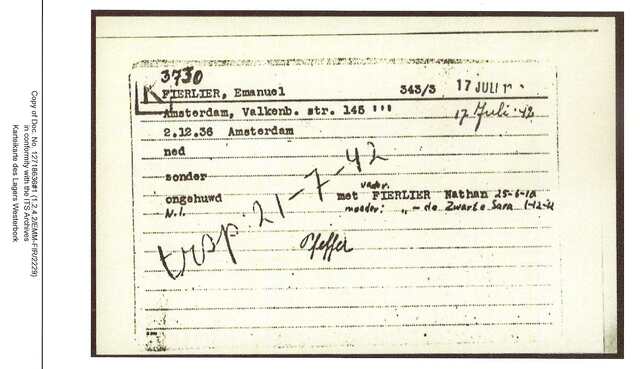 Copy of Doc. No. 12718636#1 (1.2.4.2/EMM-FIR/2229)
in conformity with the ITS Archives
Karteikarte des Lagers Westerbork
3730
K FIERLIER, Emanuel 343/3 17 JULI
Amsterdam, Valkenb. str. 145 ''' 17 Juli-42
2.12.36 Amsterdam
ned
sonder
ongehuwd met vader. FIERLIER Nathan 25-6-10
N.I. moeder: " - de Zwarte Sara 1-12-
trsp: 21-7-42
Pfeffer